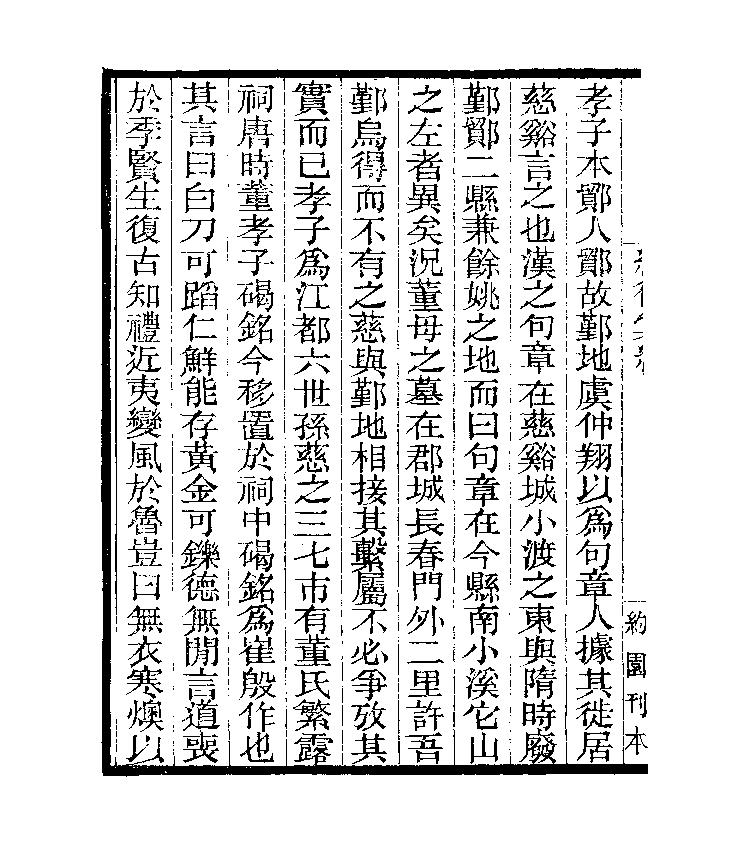 孝子本鄮人鄮故鄞地虞仲翔以爲句章人據其徙居
慈谿言之也漢之句章在慈谿城小渡之東與隋時廢
鄞鄮二縣兼餘姚之地而曰句章在今縣南小溪它山
之左者異矣況董母之墓在郡城長春門外二里許吾
鄞烏得而不有之慈與鄞地相接其繫屬不必爭攷其
實而已孝子爲江都六世孫慈之三七市有董氏繁露
祠唐時董孝子碣銘今移置於祠中碣銘爲崔殷作也
其言曰白刀可蹈仁鮮能存黃金可鑠德無閒言道喪
於季賢生復古知禮近夷變風於魯豈曰無衣寒燠以
約園刊本